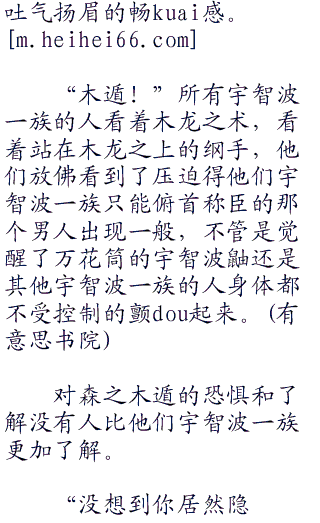 吐气扬眉的畅kuai感。
[m.heihei66.com]
“木遁！”所有宇智波
一族的人看着木龙之术，看
着站在木龙之上的纲手，他
们放佛看到了压迫得他们宇
智波一族只能俯首称臣的那
个男人出现一般，不管是觉
醒了万花筒的宇智波鼬还是
其他宇智波一族的人身体都
不受控制的颤dou起来。(有
意思书院)
对森之木遁的恐惧和了
解没有人比他们宇智波一族
更加了解。
“没想到你居然隐